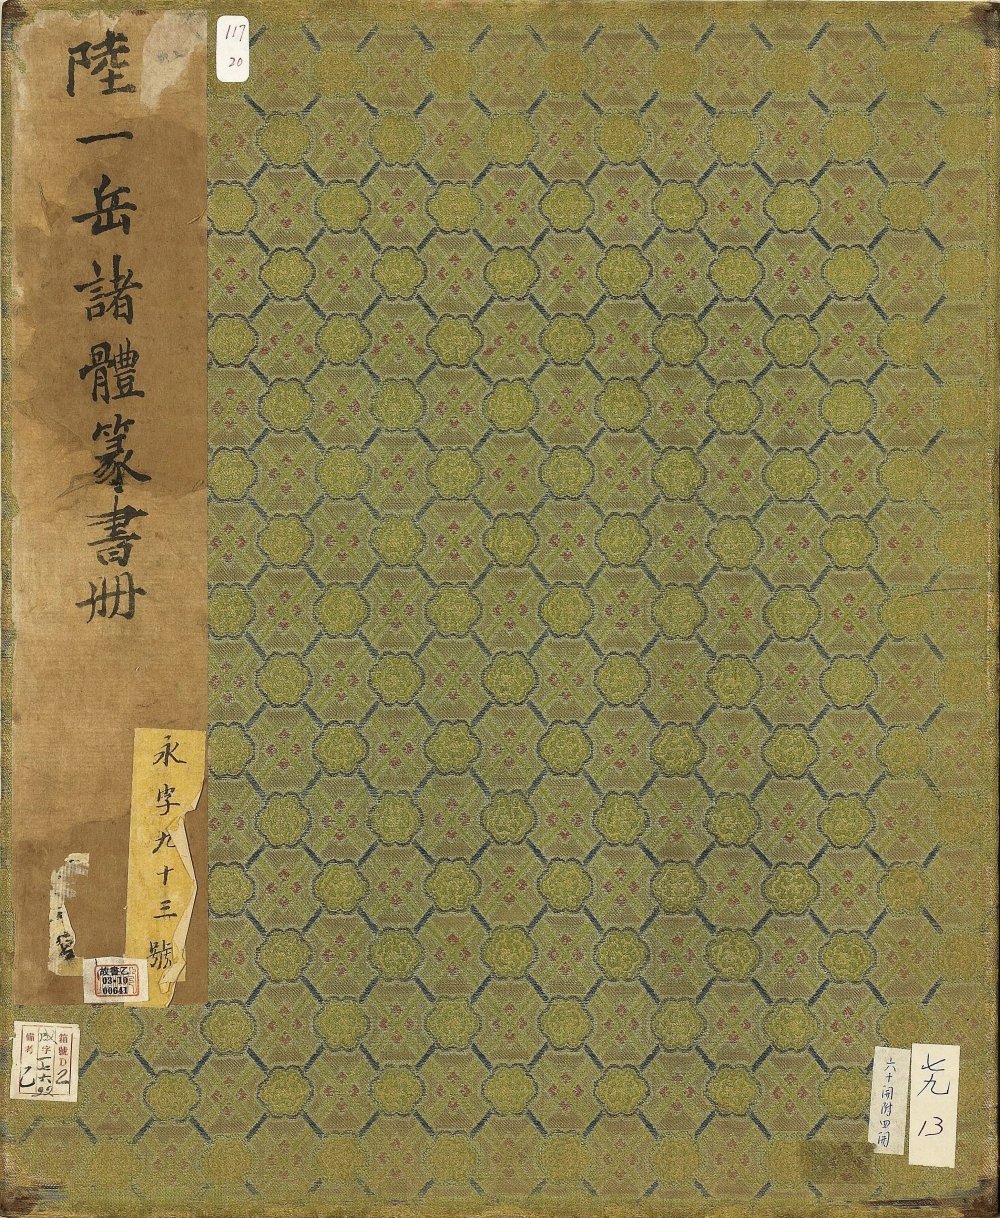 陸一岳諸體篆書冊
永字九十三號
117
20
故書乙
03-10
00641
箱號D2
字一七六
備考乙
六十開附四開
七九
13